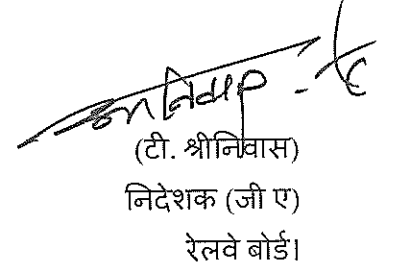 (टी. श्रीनिवास)
निदेशक (जी ए)
रेलवे बोर्ड।